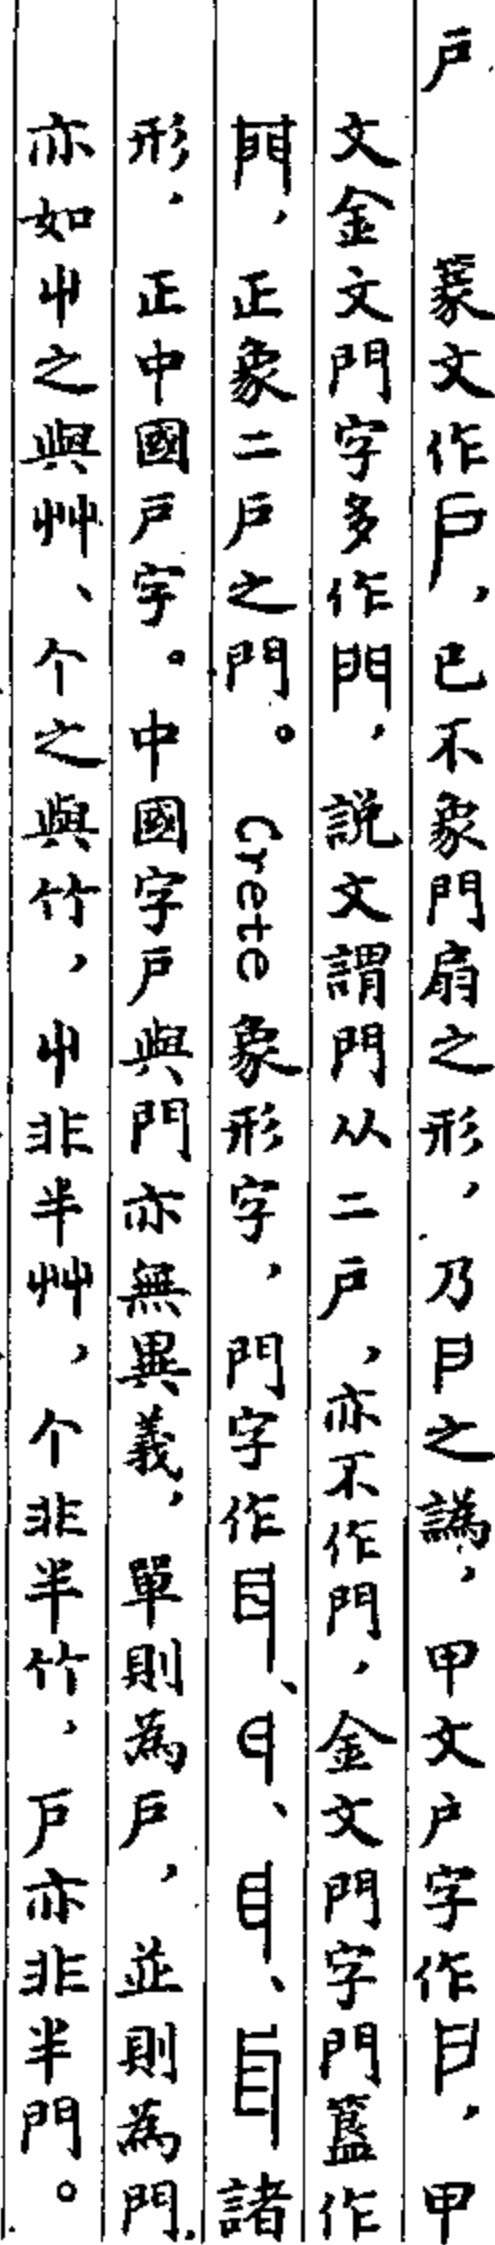 戶　篆文作戶，已不象門扇之形，乃之譌，甲文户字作，甲
文金文門字多作門，説文謂門从二戶，亦不作門，金文門字門簋作
，正象二戶之門。Crete象形字，門字作、、、諸
形．正中國戶字。中國字戶與門亦無異義，單則為戶，並則為門．
亦如屮之與艸、个之與竹，屮非半艸，个非半竹，戶亦非半門。